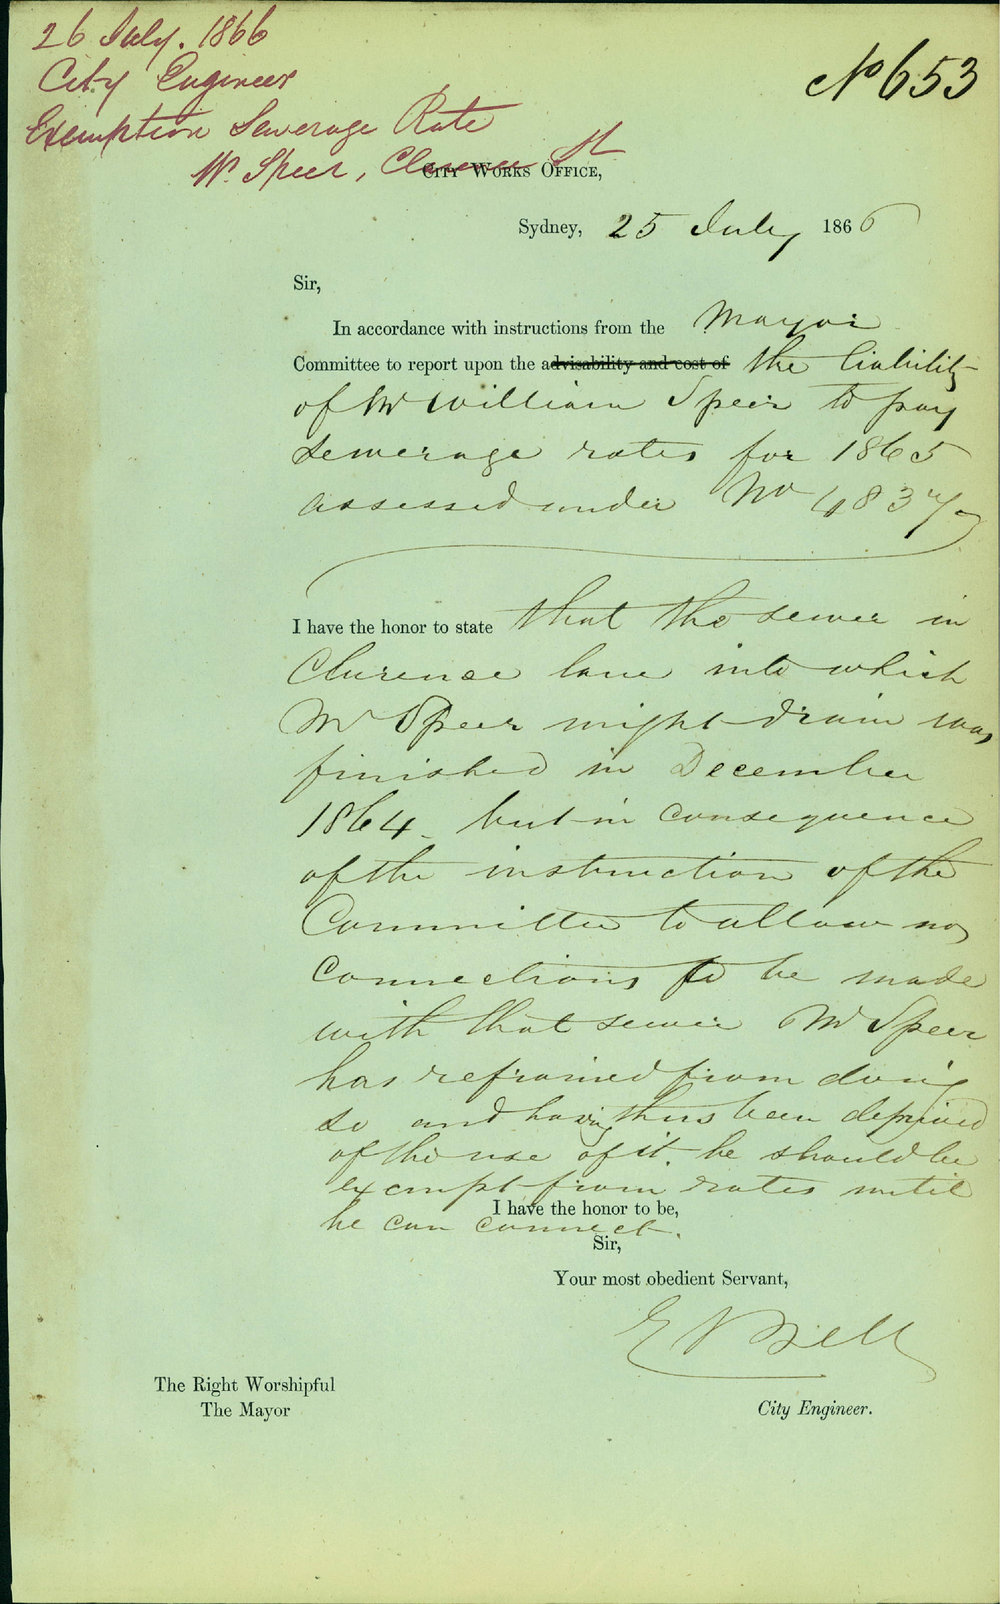 26 July. 1866
City Engineer
Exemption Sewerage Rate
W. Speer, Clarence St
No 653
City Works Office,
Sydney, 25 July 1866
Sir,
In accordance with instructions from the Mayor
Committee to report upon the advisability and cost of the liability
of Mr William Speer to pay
sewerage rates for 1865
assessed under No 4837
I have the honor to state that the sewer in
Clarence lane into which
Mr Speer might drain was
finished in December
1864 - but in consequence
of the instruction of the
Committee to allow no
connections to be made
with that sewer Mr Speer
has refrained from doing
so and having thus been deprived
of the use of it. he should be
exempt from rates until
he can connect.
I have the honor to be,
Sir,
Your most obedient Servant,
E Bell
The Right Worshipful
The Mayor
City Engineer.